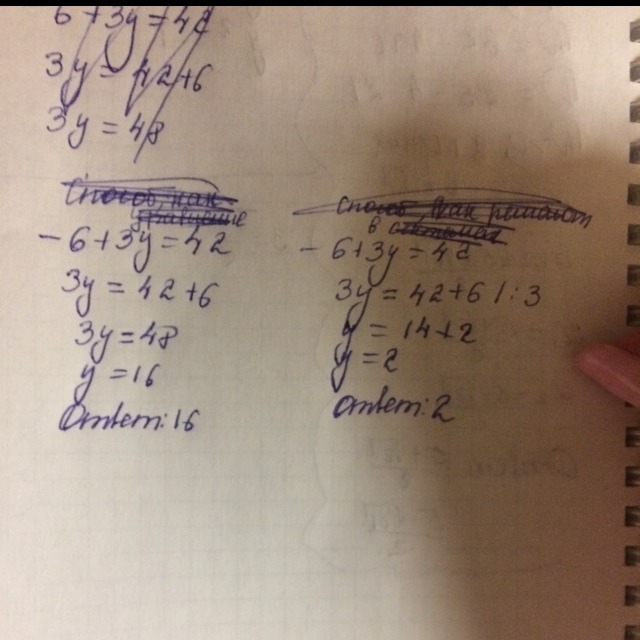 6 + 3y = 42
3y = 42+6
3y = 48
Способ как
уравнение
-6+3y=42
3y = 42+6
3y=48
y =16
Ответ: 16
Способ как
в
- 6+3y=42
3y = 42+6 /:3
y = 14+2
y=2
Ответ: 2